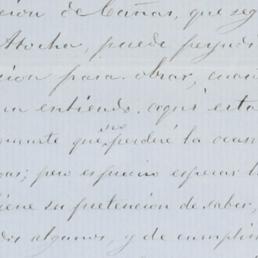 cion de Cañas, que seg
Atocha, puede
cion para obrar, cuan
un entiendo, aqui esta
que no perderé la ocas
gas; pero es preciso esperar l
iene su pretencion de saber,
dos algunos, y de cumplir